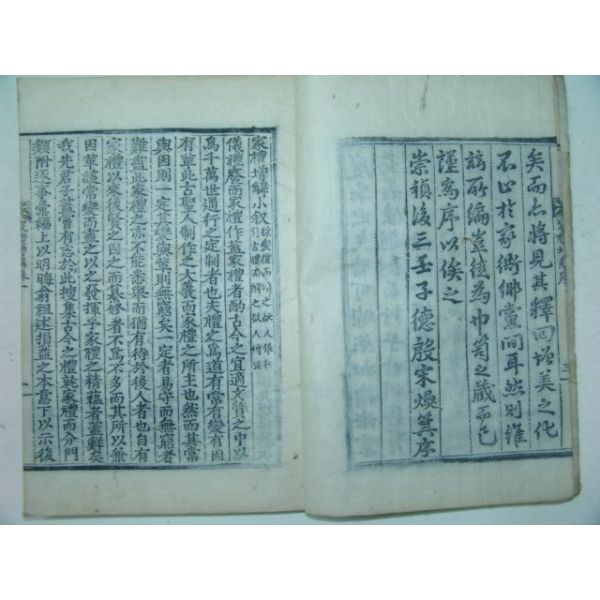 矣而亦將見其釋回增美之化
不止於家衖鄕黨間耳然則維
玆所編豈徒為巾笥之藏而已
謹為序以俟之
崇禎後三壬子德殷宋煥箕序
家禮增解小敘
儀禮廢而家禮作蓋家禮者酌古今之宜適文質之中以
爲千萬世通行之定制者也夫禮之爲道有常有變有因
有革此古聖人制作之大義而家禮之所主也然而其常
與因則一定其變與革則無窮矣一定者易守而無窮者
難盡此家禮之亦不能悉擧而猶有待於後人者也自有
家禮以來後賢之因之而纂修者不爲不多而其所以兼
因革該常變而盡之以之發揮乎家禮之精蘊者蓋鮮矣
我先君子蓋嘗有志於此搜集古今之禮就家禮而分門
類附逐事彙編上以明晦翁祖述損益之本意下以示後